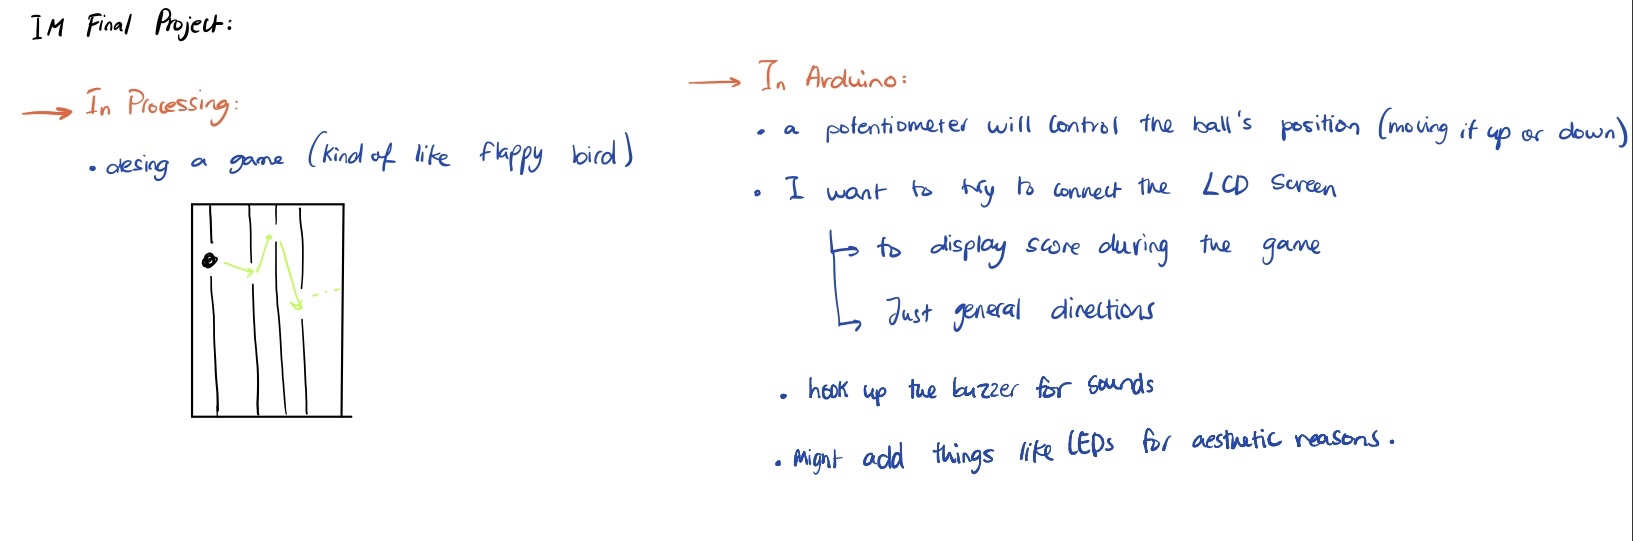 IM Final Project:
→ In Processing:
• desing a game (kind of like flappy bird)
→ In Arduino:
• a potentiometer will control the ball's position (moving it up or down)
• I want to try to connect the LCD screen
↳ to display score during the game
↳ Just general directions
• hook up the buzzer for sounds
• Might add things like LEDs for aesthetic reasons.